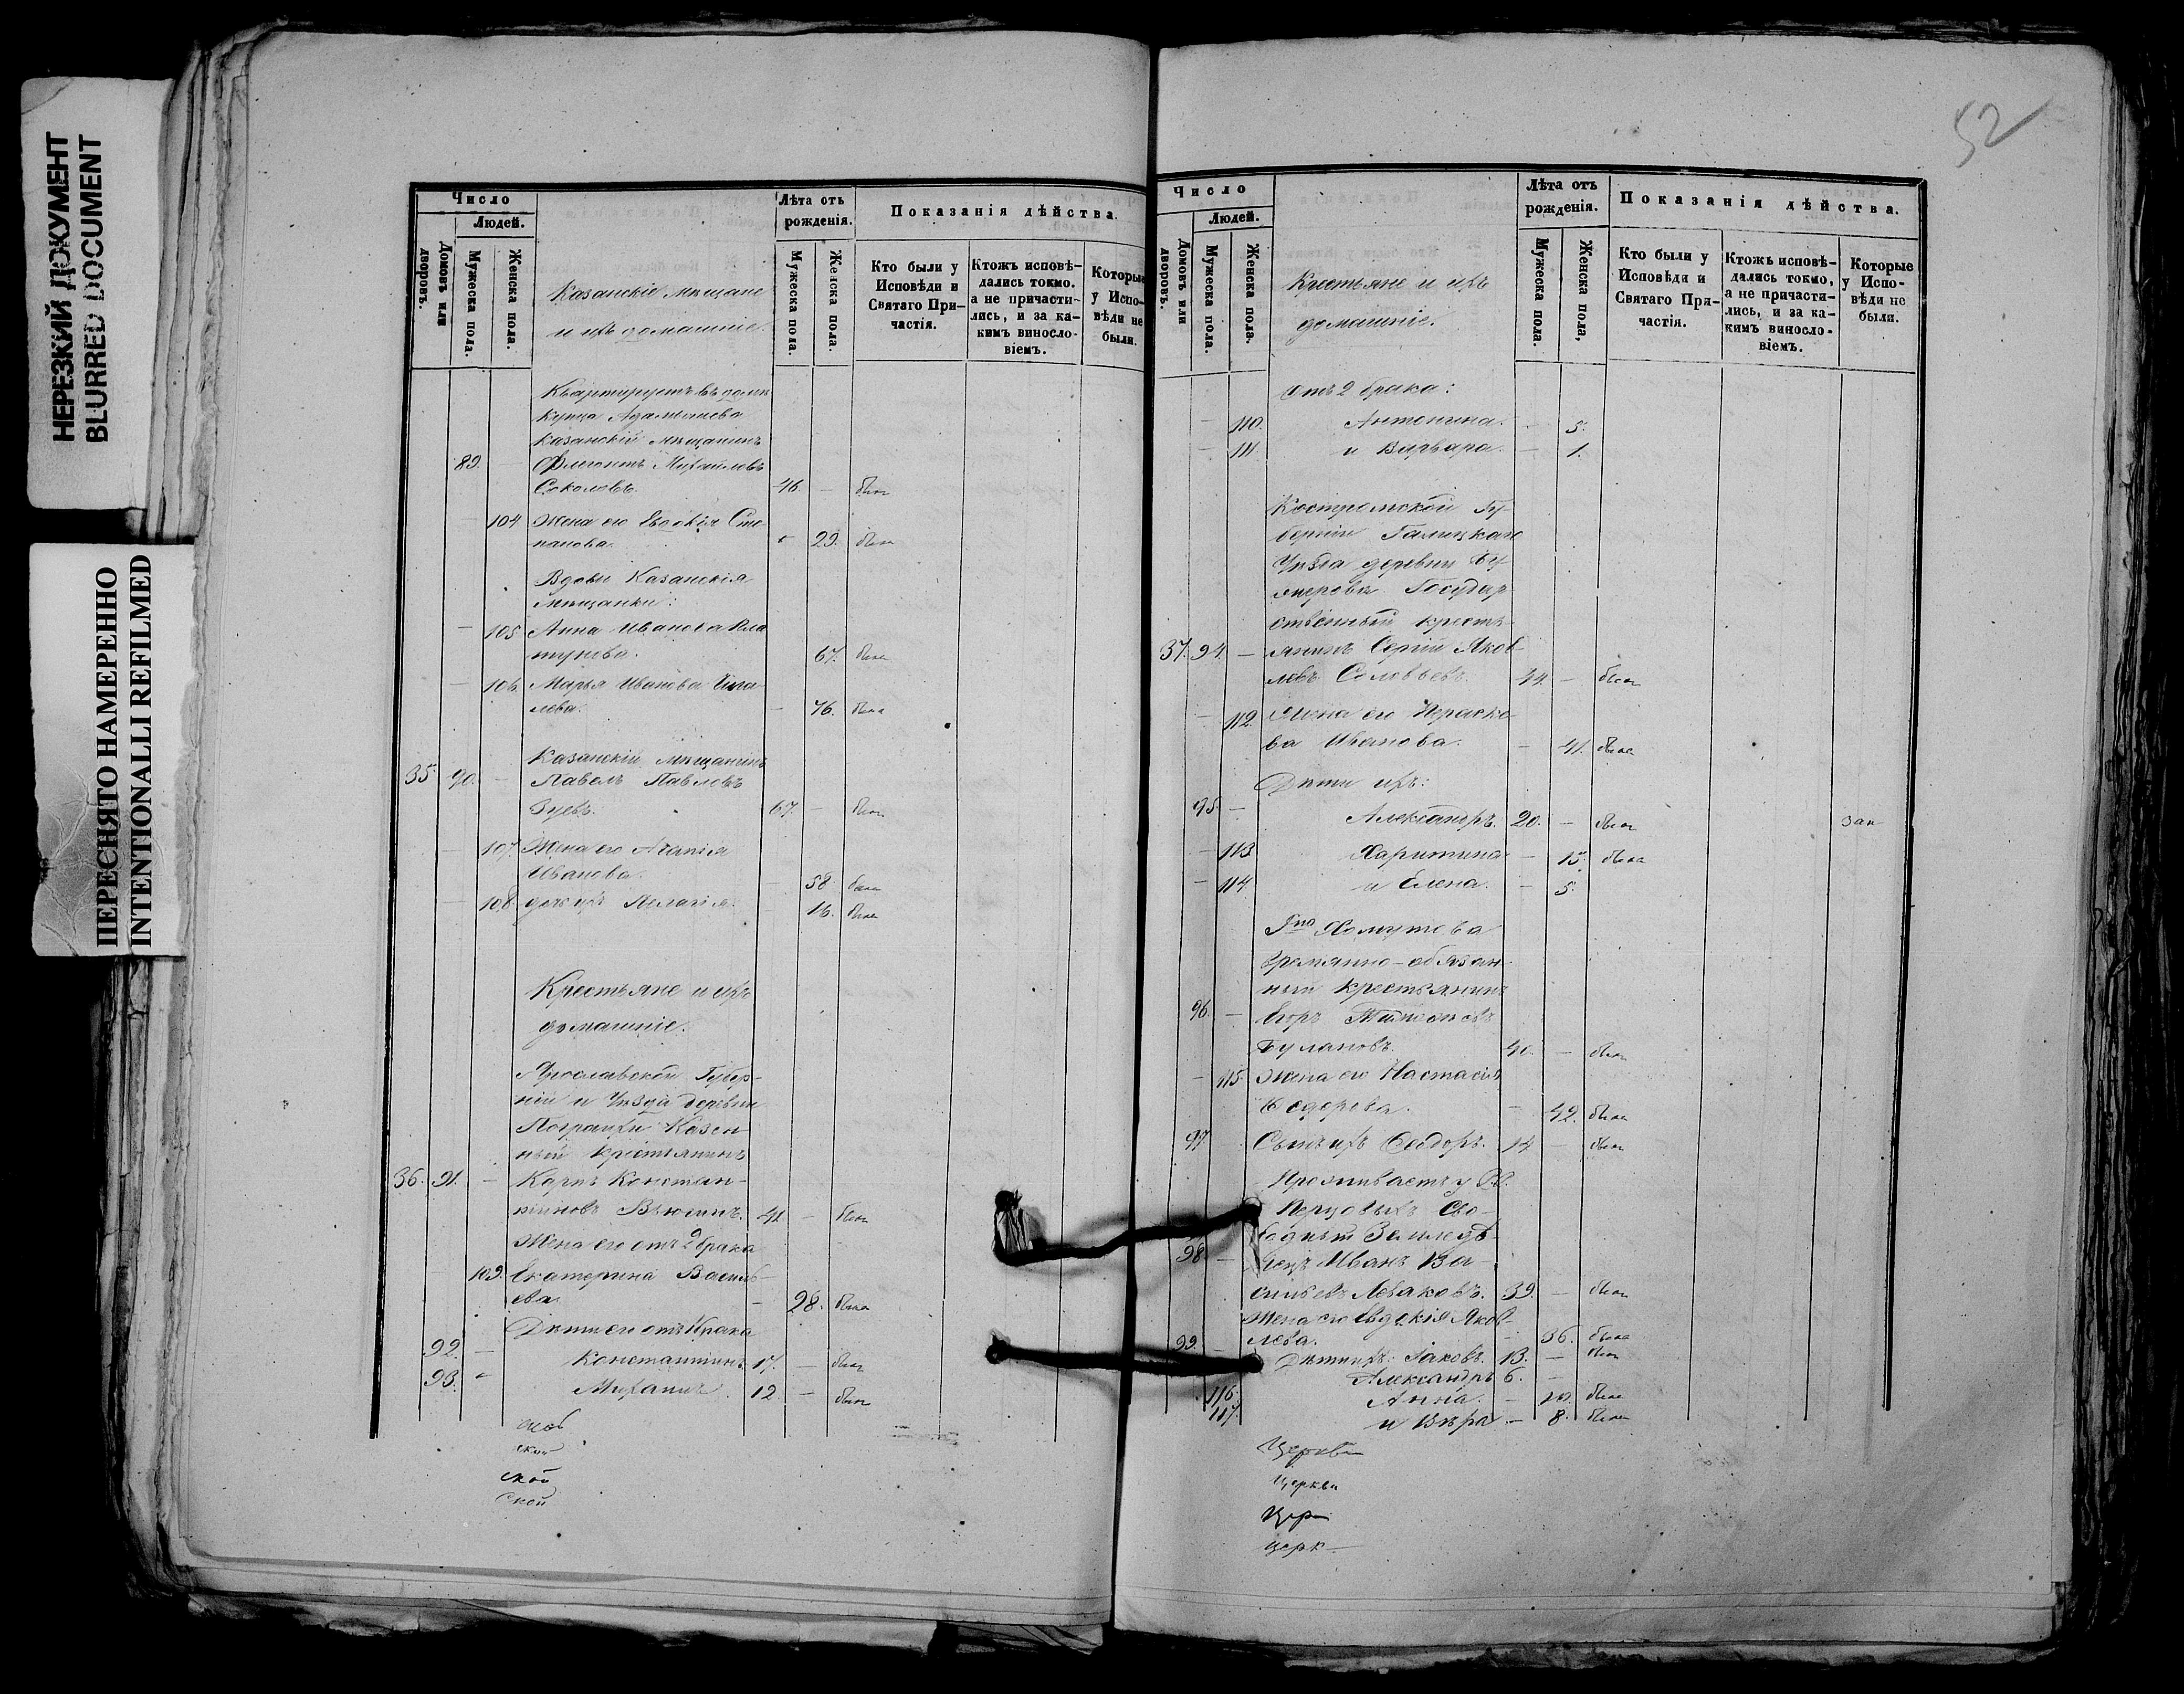 НЕРЕЗКИЙ ДОКУМЕНТ
BLURRED DOCUMENT
ПЕРЕСНЯТО НАМЕРЕННО
INTENTIONALLI REFILMED
Число
Людей.
Домовъ или дворовъ.
Мужеска пола.
Женска пола.
Казанскіе мѣщане
и ихъ домашніе.
Лѣта отъ рожденія.
Мужеска пола.
Женска пола.
Показанія дѣйства.
Кто были у Исповѣди и Святаго При-частія.
Ктожъ исповѣ-дались токмо, а не причасти-лись, и за ка-кимъ винослo-віемъ.
Которые у Испо-вѣди не были.
Квартируетъ въ домѣ
купца
Казанскій мѣщанинъ
89. — Флегонтъ Михайловъ
Соколовъ. 46. — былъ
— 104 Жена его Евдокія Сте-
панова. 29. была
Вдовы Казанскія
мѣщанки:
— 105 Анна Иванова
67. была
— 106. Марья Иванова
— 76. была
Казанскій мѣщанинъ
35. 90. — Павелъ Павловъ
Зуевъ. 67. — былъ
— 107. Жена его Агапія
Иванова. — 58 была
— 108. дочь ихъ Пелагія. 16. была
Крестьяне и ихъ
домашніе.
Ярославской Губер-
ніи и Уѣзда деревни
Казен-
ный крестьянинъ
36. 91. — Карпъ Констан-
тиновъ 41 — былъ
Жена его отъ 2 брака
109. Екатерина Василь-
ева — 28. была
Дѣти его отъ 1 брака
92. — Константинъ 17. — былъ
93. Михаилъ. 12. — былъ
ской
ской
ской
52
Число
Людей.
Домовъ или дворовъ.
Мужеска пола.
Женска пола.
Крестьяне и ихъ
домашніе.
Лѣта отъ рожденія.
Мужеска пола.
Женска пола,
Показанія дѣйства.
Кто были у Исповѣди и Святаго При-частія.
Ктожъ исповѣ-дались токмо, а не причасти-лись, и за ка-кимъ винослo-віемъ.
Которые у Испо-вѣди не были.
Отъ 2 брака:
— 110. Антонина. — 5.
— 111 и Варвара. — 1.
Костромской Гу-
берніи Галицкаго
Уѣзда деревни
Государ
ственный кресть-
37. 94. — янинъ Сергій Яков-
левъ Соловьевъ. 44. — былъ
— 112. Жена его Параске-
ва Иванова. — 41. была
Дѣти ихъ:
95 — Александръ. 20. — былъ зап
— 113 Харитина — 15. была
— 114 и Елена. — 5.
Гна Хомутова
временно-обязан-
ный крестьянинъ
96. — Егоръ
Булановъ. 40. — былъ
— 115. Жена его Настасія
Ѳедорова. — 42. была
97 Сынъ ихъ Ѳеодоръ. 14 — былъ
Проживаетъ у
Перцовыхъ Сво-
бодный Землед-
98. — Иванъ Ва-
сильевъ Леваковъ. 39. — былъ
Жена его Евдокія Яков-
лева. — 36. была
99. — Дѣти ихъ: Іаковъ. 13. — былъ
Александръ 6. —
116. Анна. — 10. была
117. и Вѣра — 8. была
Церкви
Церкви
Цер
церк